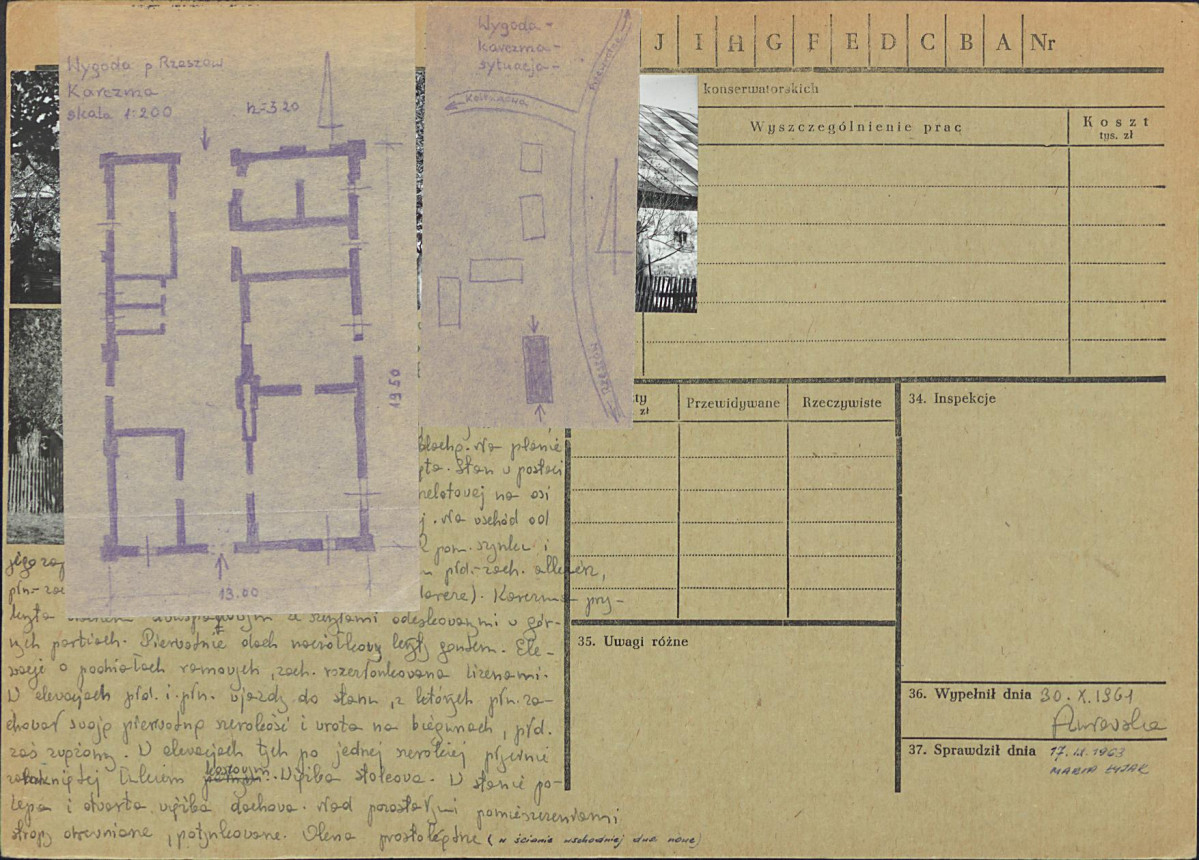 Wygoda p Rzeszów
Karczma
skala 1:200
h=3.20
1950
13.00
Wygoda -
karczma -
sytuacja -
Kolbuszowa
Rzeszów
J I H G F E D C B A Nr
konserwatorskich
Wyszczególnienie prac
Koszt
tys. zł
ty
zł
Przewidywane
Rzeczywiste
34. Inspekcje
35. Uwagi różne
36. Wypełnił dnia 30.X.1961
37. Sprawdził dnia 17.IX.1963
MARIA ŁYŻAK
Na planie
Stan w postaci
na osi
Na wschód od
pom. szynku i
płd.-zach. alkierz,
Karczma pry-
szczytami odeskowanymi w gór-
nych partiach. Pierwotnie dach naczółkowy kryty gontem. Ele-
wacje o podziałach ramowych, zach. rozczłonkowana lizenami.
W elewacjach płd. i płn. wjazdy do stanu, z których płn. za-
chował swoją pierwotną szerokość i wrota na biegunach, płd.
zaś zwężony. W elewacjach tych po jednej szerokiej płycinie
zamkniętej łukiem koszowym. Więźba stolcowa. W stanie po-
lepa i otwarta więźba dachowa. Nad pozostałymi pomieszczeniami
stropy drewniane, potynkowane. Okna prostokątne (w ścianie wschodniej dwa nowe)